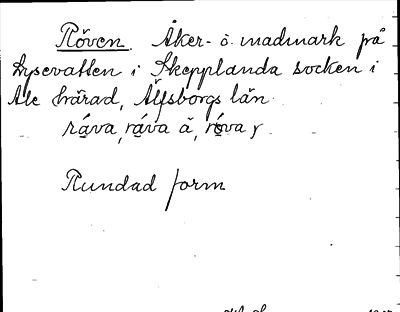 Röven. Åker- o. madmark på
Lysevatten i Skepplanda socken i
Ale härad, Älfsborgs län
ráva, ráva å, róva,
Rundad form